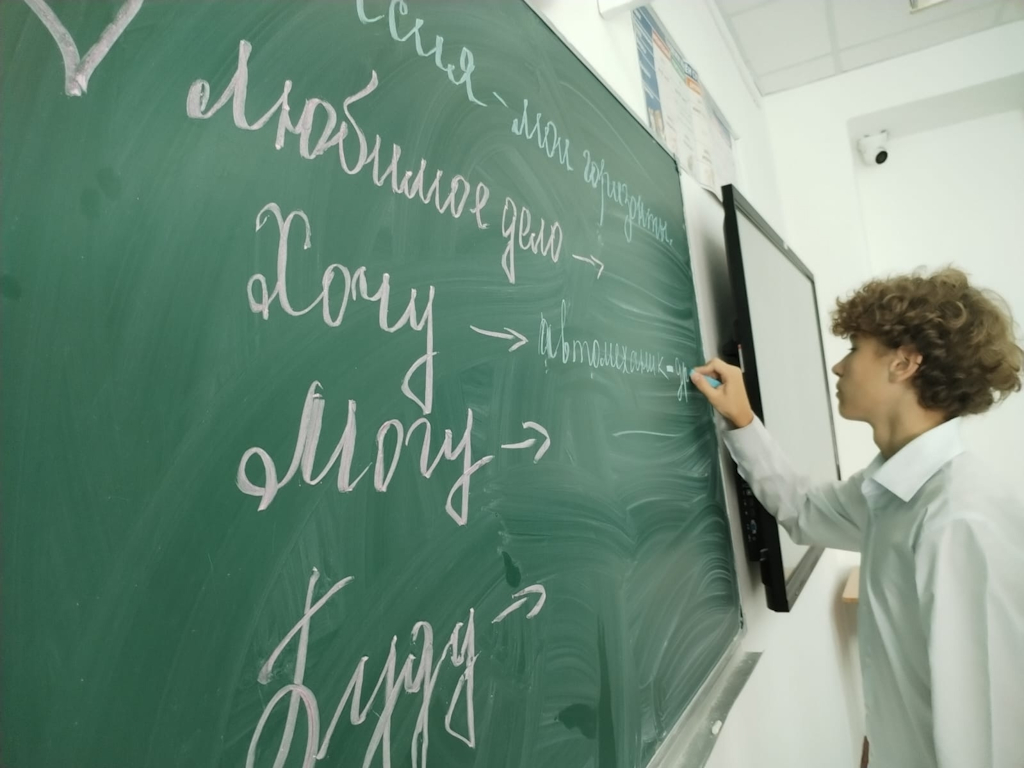 ссия - мои горизонты.
Любимое дело →
Хочу → автомеханик-
Могу →
Буду →